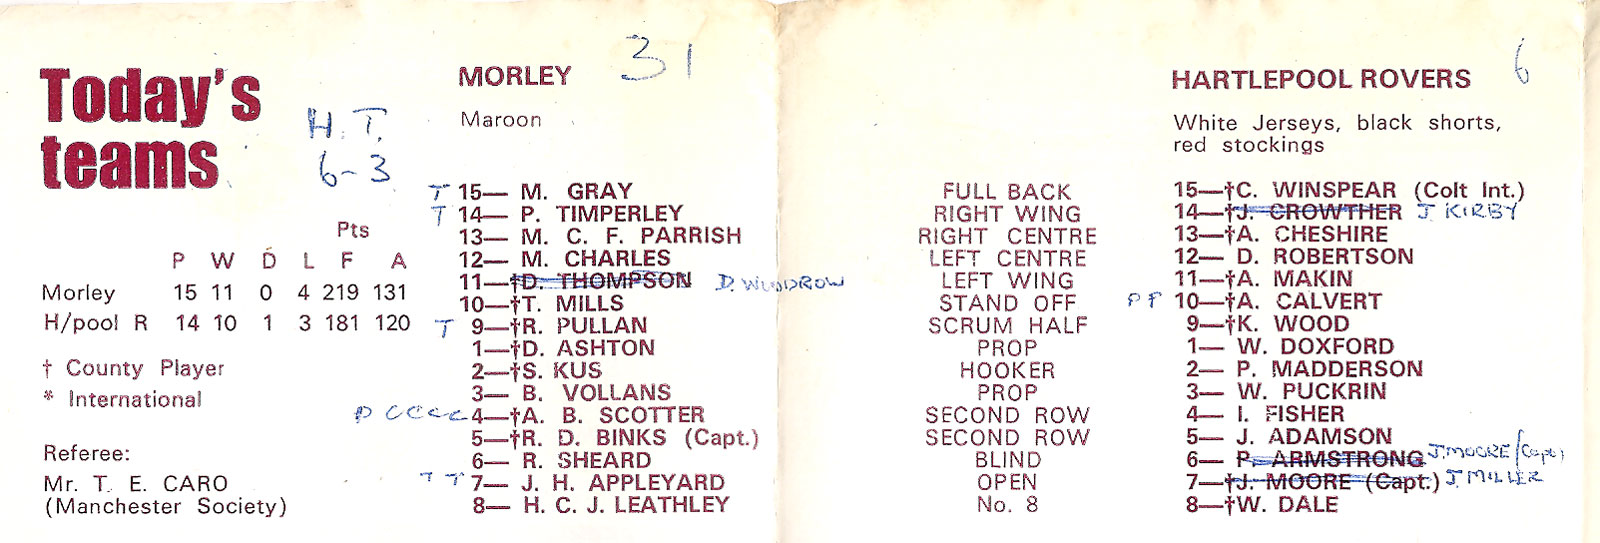 Today's
teams
H.T.
6-3
Pts
P W D L F A
Morley 15 11 0 4 219 131
H/pool R 14 10 1 3 181 120
† County Player
* International
Referee:
Mr. T. E. CARO
(Manchester Society)
MORLEY 31
Maroon
T 15— M. GRAY
T 14— P. TIMPERLEY
13— M. C. F. PARRISH
12— M. CHARLES
11—†D. THOMPSON D. WOODROW
10—†T. MILLS
T 9—†R. PULLAN
1—†D. ASHTON
2—†S. KUS
3— B. VOLLANS
P C C C C 4—†A. B. SCOTTER
5—†R. D. BINKS (Capt.)
6— R. SHEARD
T T 7— J. H. APPLEYARD
8— H. C. J. LEATHLEY
FULL BACK
RIGHT WING
RIGHT CENTRE
LEFT CENTRE
LEFT WING
STAND OFF
SCRUM HALF
PROP
HOOKER
PROP
SECOND ROW
SECOND ROW
BLIND
OPEN
No. 8
HARTLEPOOL ROVERS 6
White Jerseys, black shorts,
red stockings
15—†C. WINSPEAR (Colt Int.)
14—†J. CROWTHER J. KIRBY
13—†A. CHESHIRE
12— D. ROBERTSON
11—†A. MAKIN
P P 10—†A. CALVERT
9—†K. WOOD
1— W. DOXFORD
2— P. MADDERSON
3— W. PUCKRIN
4— I. FISHER
5— J. ADAMSON
6— P. ARMSTRONG J. MOORE (Capt)
7—†J. MOORE (Capt.) J. MILLER
8—†W. DALE